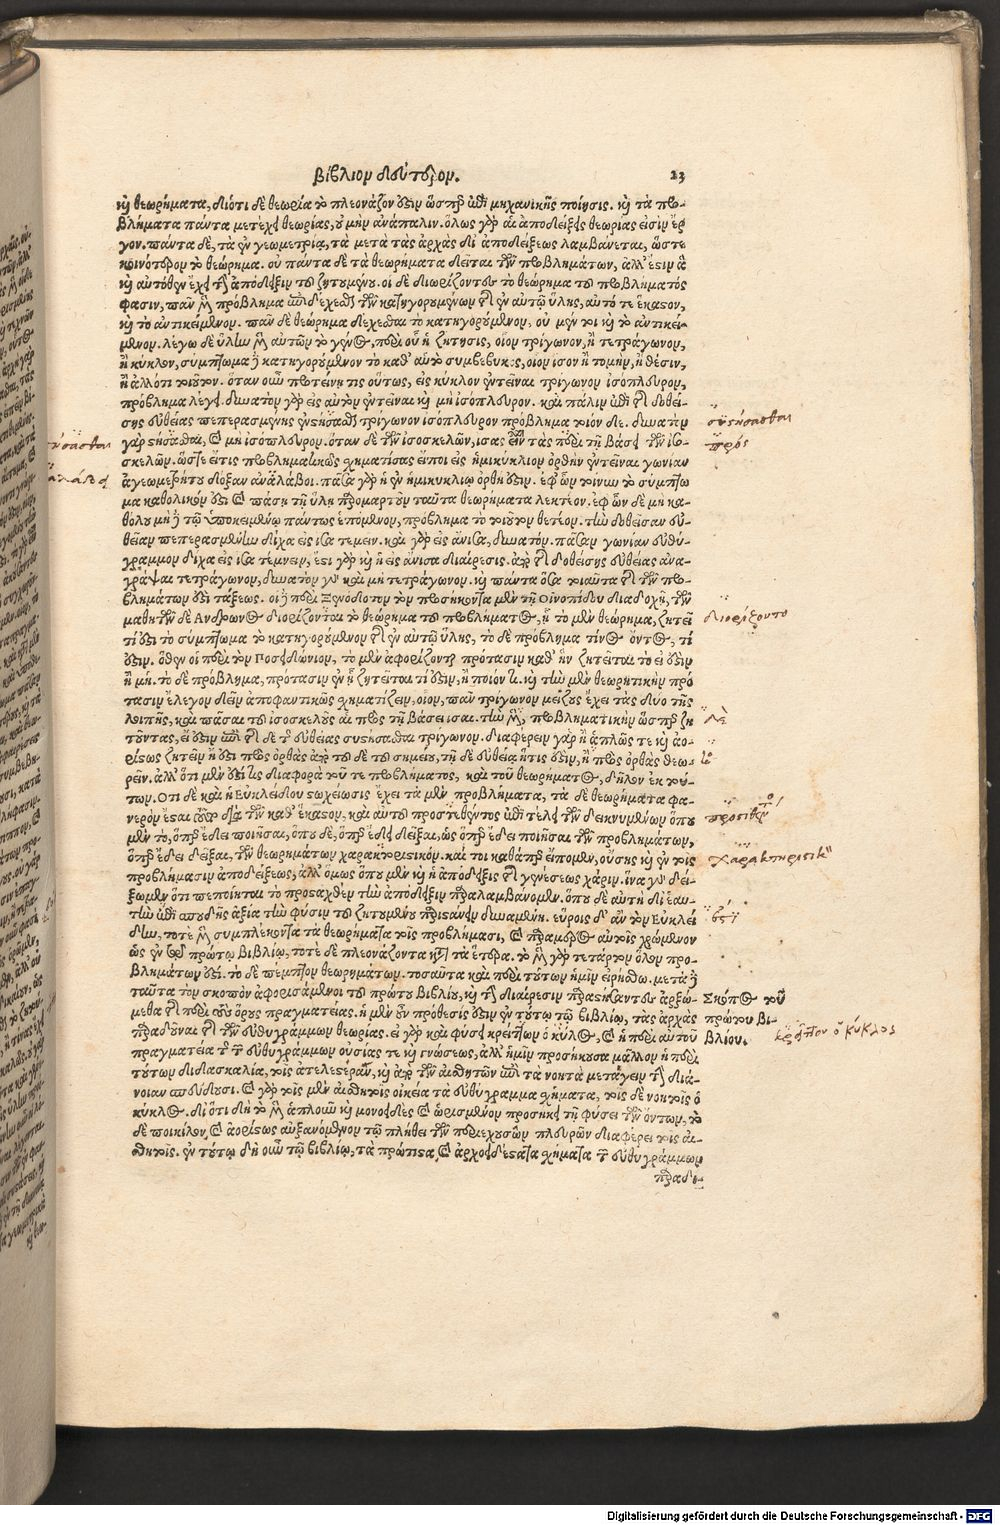 βίβλιον δεύτερον. 23
καὶ θεωρήματα, διότι δὲ θεωρία τὸ πλεονάζον ὅσιν ὥσπερ ἐπὶ μηχανικῆς ποίησις. καὶ τὰ προ-
βλήματα πάντα μετέχει θεωρίας, οὐ μὴν ἀνάπαλιν. ὅλως γὰρ αἱ ἀποδείξεις θεωρίας εἰσὶν ἔρ
γον. πάντα δὲ, τὰ ἐν γεωμετρίᾳ, τὰ μετὰ τὰς ἀρχὰς δι' ἀποδείξεως λαμβάνεται, ὥστε
κοινότερον τὸ θεώρημα. οὐ πάντα δὲ τὰ θεωρήματα δεῖται τῶν προβλημάτων, ἀλλ' ἔστιν ἃ
καὶ αὐτόθεν ἔχει τὴν ἀπόδειξιν τοῦ ζητουμένου. οἱ δὲ διορίζοντες τὸ θεώρημα τοῦ προβλήματός
φασιν, πᾶν μὲν πρόβλημα ἐπιδέχεσθαι τῶν κατηγορουμένων τῆς ἐν αὐτῷ ὕλης, αὐτό τε ἕκαστον,
καὶ τὸ ἀντικείμενον. πᾶν δὲ θεώρημα δέχεσθαι τὸ κατηγορούμενον, οὐ μέντοι καὶ τὸ ἀντικεί-
μενον. λέγω δὲ ὕλην μὲν αὐτῶν τὸ γένος, περὶ οὗ ἡ ζήτησις, οἷον τρίγωνον, ἢ τετράγωνον,
ἢ κύκλον, σύμπτωμα ἢ κατηγορούμενον τὸ καθ' αὑτὸ συμβεβηκός, οἷον ἴσον ἢ τομὴν, ἢ θέσιν,
ἢ ἄλλό τι τοιοῦτον. ὅταν οὖν προτείνῃ τις οὕτως, εἰς κύκλον ἐντεῖναι τρίγωνον ἰσόπλευρον,
πρόβλημα λέγει. δυνατὸν γὰρ εἰς αὐτὸν ἐντεῖναι καὶ μὴ ἰσόπλευρον. καὶ πάλιν ἐπὶ τῆς δοθεί-
σης εὐθείας πεπερασμένης ἐνστήσασθαι τρίγωνον ἰσόπλευρον πρόβλημα τοιόν δε. δυνατὸν
γὰρ στήσασθαι, καὶ μὴ ἰσόπλευρον. ὅταν δὲ τῶν ἰσοσκελῶν, ἴσας εἶναι τὰς περὶ τῇ βάσει τῶν ἰσο-
σκελῶν. ὥστε εἴ τις προβληματικῶς σχηματίσας εἴποι εἰς ἡμικύκλιον ὀρθὴν ἐντεῖναι γωνίαν
ἀγεωμετρήτου δόξαν ἀναλάβοι. πᾶσα γὰρ ἡ ἐν ἡμικυκλίῳ ὀρθὴ ὅσιν. ἐφ' ὧν τοίνυν τὸ σύμπτω
μα καθολικόν ὅσι καὶ πάσῃ τῇ ὕλῃ παρομαρτὸν ταῦτα θεωρήματα λεκτέον. ἐφ' ὧν δὲ μὴ κα-
θόλου μὴ δὲ τῷ ὑποκειμένῳ πάντως ἑπόμενον, πρόβλημα τὸ τοιοῦτον θετέον. τὴν δοθεῖσαν εὐ-
θεῖαν πεπερασμένην δίχα εἰς ἴσα τεμεῖν. καὶ γὰρ εἰς ἄνισα, δυνατόν. πᾶσαν γωνίαν εὐθύ-
γραμμον δίχα εἰς ἴσα τέμνειν, ἔστι γὰρ καὶ ἡ εἰς ἄνισα διαίρεσις. ἀπὸ τῆς δοθείσης εὐθείας ἀνα-
γράψαι τετράγωνον, δυνατὸν γὰρ καὶ μὴ τετράγωνον. καὶ πάντα ὅσα τοιαῦτα τῆς τῶν προ-
βλημάτων ὅσι τάξεως. οἱ δὲ περὶ Ζηνόδοτον τὸν προσήκοντα μὲν τῇ Οἰνοπίδου διαδοχῇ, τῶν
μαθητῶν δὲ Ανδρωνος διορίζονται τὸ θεώρημα τοῦ προβλήματος, ᾗ τὸ μὲν θεώρημα, ζητεῖ
τί ὅσι τὸ σύμπτωμα τὸ κατηγορούμενον τῆς ἐν αὐτῷ ὕλης, τὸ δὲ πρόβλημα τίνος ὄντος, τί
ὅσιν. ὅθεν οἱ περὶ τὸν Ποσειδώνιον, τὸ μὲν ἀφορίζοντι πρότασιν καθ' ἣν ζητεῖται τὸ εἰ ὅσιν
ἢ μή. τὸ δὲ πρόβλημα, πρότασιν ἐν ᾗ ζητεῖται τί ὅσιν, ἢ ποιόν τι. καὶ τὴν μὲν θεωρητικὴν πρό
τασιν ἔλεγον δεῖν ἀποφαντικῶς σχηματίζειν, οἷον, πᾶν τρίγωνον μείζους ἔχει τὰς δύο τῆς
λοιπῆς, καὶ πᾶσαι τοῦ ἰσοσκελοῦς αἱ πρὸς τῇ βάσει ἴσαι. τὴν δὲ, προβληματικὴν ὥσπερ ζη
τοῦντας, εἰ ὅσιν ἐπὶ τῆς δὲ τῆς εὐθείας συστήσασθαι τρίγωνον. διαφέρειν γὰρ ἢ ἁπλῶς τε καὶ ἀο-
ρίστως ζητεῖν ἢ ὅσι πρὸς ὀρθὰς ἀπὸ τοῦ δὲ τοῦ σημείου, τῇ δὲ εὐθείᾳ ἥτις ὅσιν, ἢ πρὸς ὀρθὰς θεω-
ρεῖν. ἀλλ' ὅτι μὲν ὅσί τις διαφορὰ τοῦ τε προβλήματος, καὶ τοῦ θεωρήματος, δῆλον ἐκ τού-
των. Οτι δὲ καὶ ἡ Εὐκλείδου στοχείωσις ἔχει τὰ μὲν προβλήματα, τὰ δὲ θεωρήματα φα-
νερὸν ἔσται ἀπὸ τῶν καθ' ἕκαστον, καὶ αὐτοῦ προστεθέντος ἐπὶ τέλει τῶν δεικνυμένων ὅπου
μὲν τὸ, ὅπερ ἔδει ποιῆσαι, ὅπου δὲ, ὅπερ ἔδει δεῖξαι, ὡς ὅπερ ἔδει ποιῆσαι τῶν προβλημάτων,
ὅπερ ἔδει δεῖξαι, τῶν θεωρημάτων χαρακτηριστικόν. καί τοι καθάπερ εἴπομεν, οὔσης καὶ ἐν τοῖς
προβλήμασιν ἀποδείξεως, ἀλλ' ὅμως ὅπου μὲν καὶ ἡ ἀπόδειξις τῆς γενέσεως χάριν. ἵνα γὰρ δεί-
ξωμεν ὅτι πεποίηται τὸ προσταχθὲν τὴν ἀπόδειξιν παραλαμβάνομεν. ὅπου δὲ αὐτὴ δι' ἑαυ-
τὴν ἐπὶ σπουδῆς ἀξία τὴν φύσιν τοῦ ζητουμένου παριστάνειν δυναμένη. εὕροις δ' ἂν τὸν Εὐκλεί
δην, τοτὲ μὲν συμπλέκοντα τὰ θεωρήματα τοῖς προβλήμασι, καὶ παραμέρος αὐτοῖς χρώμενον
ὡς ἐν τῷ πρώτῳ βιβλίῳ, τοτὲ δὲ πλεονάζοντα κατὰ τὰ ἕτερα. τὸ μὲν γὰρ τέταρτον ὅλον προ-
βλημάτων ὅσί. τὸ δὲ πέμπτον θεωρημάτων. τοσαῦτα καὶ περὶ τούτων ἡμῖν εἰρήσθω. μετὰ δὲ
ταῦτα τὸν σκοπὸν ἀφορισάμενοι τοῦ πρώτου βιβλίου, καὶ τὴν διαίρεσιν παραστήσαντες ἀρξώ-
μεθα τῆς περὶ τοὺς ὅρους πραγματείας. ἡ μὲν οὖν πρόθεσίς ὅσιν ἐν τούτῳ τῷ βιβλίῳ, τὰς ἀρχὰς
παραδοῦναι τῆς τῶν εὐθυγράμμων θεωρίας. εἰ γὰρ καὶ φύσει κρείττων ὁ κύκλος, καὶ ἡ περὶ αὐτοῦ
πραγματεία τῆς τῶν εὐθυγράμμων οὐσίας τε καὶ γνώσεως, ἀλλ' ἡμῖν προσήκουσα μᾶλλον ἡ περὶ
τούτων διδασκαλία, τοῖς ἀτελεστέροις, καὶ ἀπὸ τῶν αἰσθητῶν ἐπὶ τὰ νοητὰ μετάγειν τὴν διά-
νοιαν σπεύδουσι. καὶ γὰρ τοῖς μὲν αἰσθητοῖς οἰκεῖα τὰ εὐθύγραμμα σχήματα, τοῖς δὲ νοητοῖς ὁ
κύκλος. δι ότι δὴ τὸ μὲν ἁπλοῦν καὶ μονοειδὲς καὶ ὡρισμένον προσήκει τῇ φύσει τῶν ὄντων, τὸ
δὲ ποικίλον, καὶ ἀορίστως αὐξανόμενον τῷ πλήθει τῶν περιεχουσῶν πλευρῶν διαφέρει τοῖς αἰ-
σθητοῖς. ἐν τούτῳ δὴ οὖν τῷ βιβλίῳ, τὰ πρώτιστα, καὶ ἀρχοειδέστατα σχήματα τῶν εὐθυγράμμων
παραδί-
συστήσασθαι
πρός
διορίζοντο
δὲ
προστιθέν
χαρακτηριστικ
ὅσί
Σκόπος τοῦ
πρώτου βι-
βλίου.
κρεῖττον ὁ κύκλος
Digitalisierung gefördert durch die Deutsche Forschungsgemeinschaft - DFG